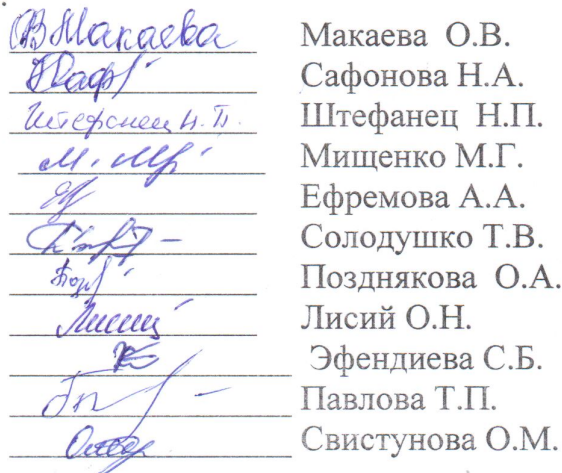 ОВМакаева Макаева О.В.
Сафонова Н.А.
Штефанец Н.П. Штефанец Н.П.
Мищенко М.Г.
Ефремова А.А.
Солодушко Т.В.
Позднякова О.А.
Лисий Лисий О.Н.
Эфендиева С.Б.
Павлова Т.П.
Свистунова О.М.